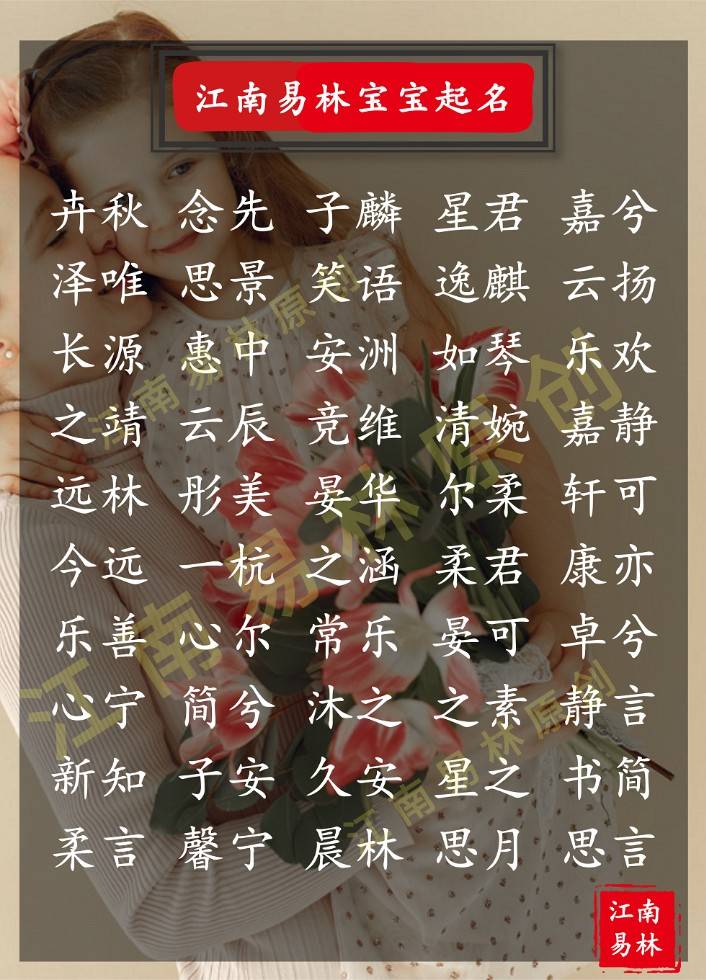 江南易林宝宝起名
卉秋 念先 子麟 星君 嘉兮
泽唯 思景 笑语 逸麒 云扬
长源 惠中 安洲 如琴 乐欢
之靖 云辰 竞维 清婉 嘉静
远林 彤美 晏华 尔柔 轩可
今远 一杭 之涵 柔君 康亦
乐善 心尔 常乐 晏可 卓兮
心宁 简兮 沐之 之素 静言
新知 子安 久安 星之 书简
柔言 馨宁 晨林 思月 思言
江南易林原创
江南易林原创
江南易林原创
江南
易林